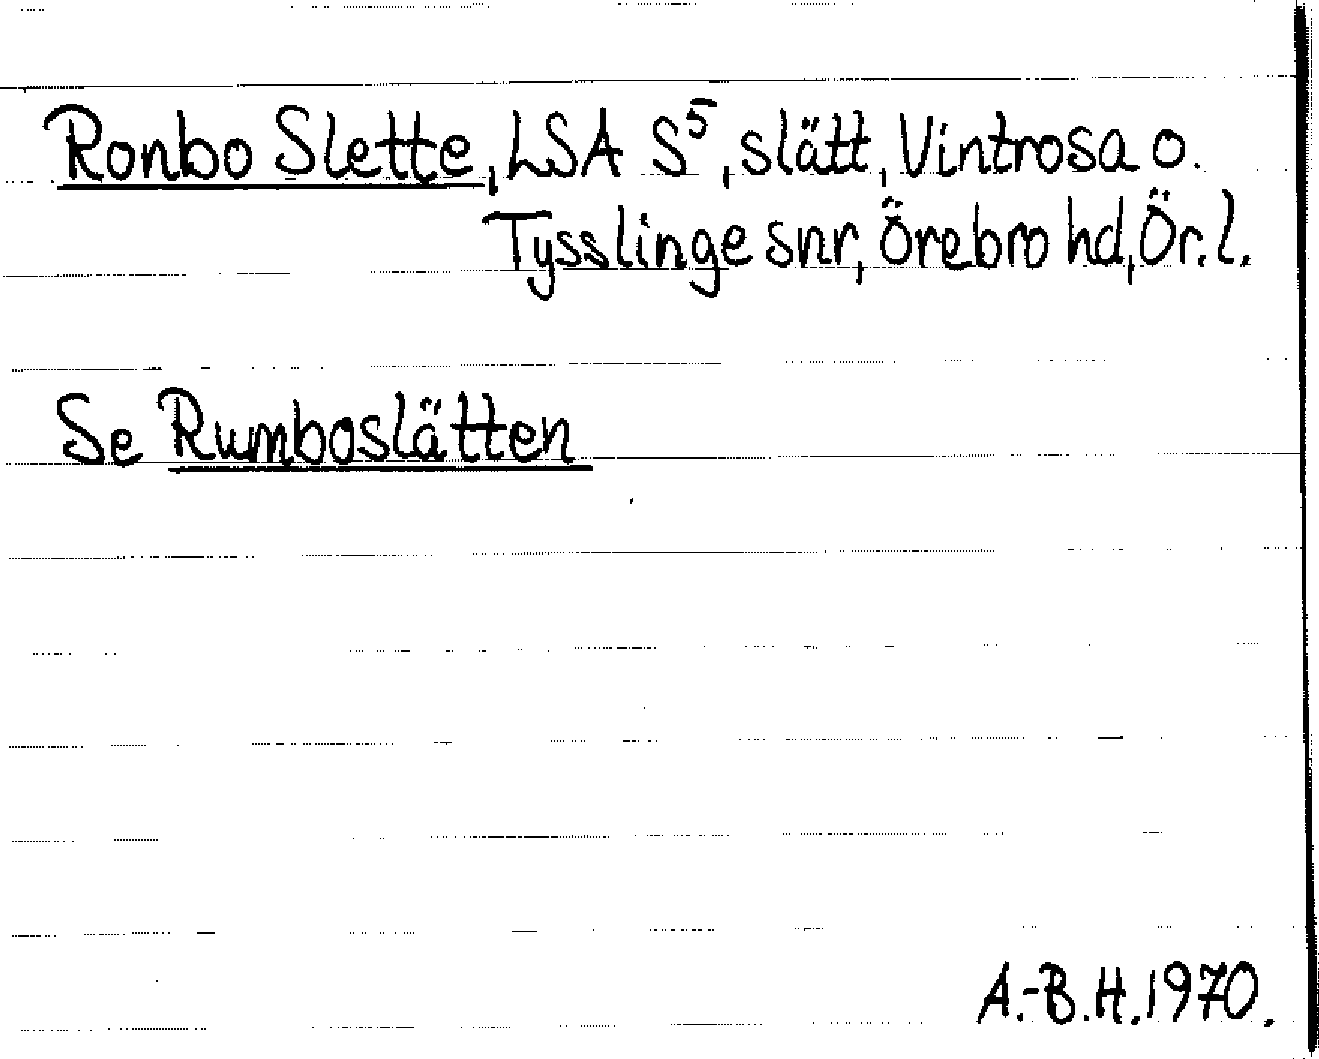 Ronbo Slette, LSA S⁵, slätt, Vintrosa o.
Tysslinge snr, Örebro hd, Ör. l.
Se Rumboslätten
A.-B.H. 1970.